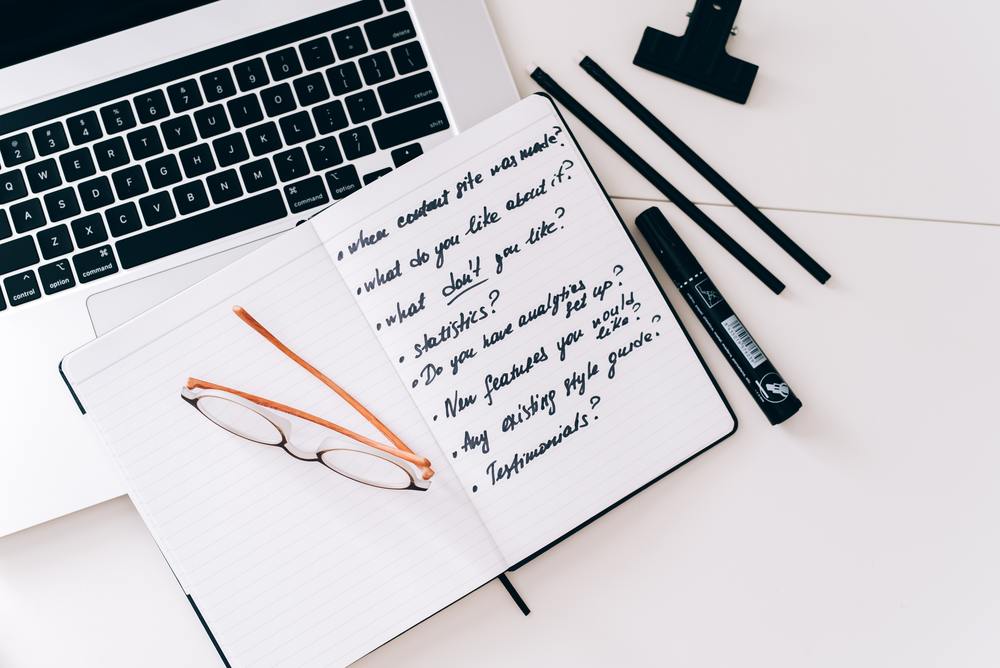 delete
@ 2
# 3
$ 4
% 5
^ 6
& 7
* 8
( 9
) 0
Q W E R T Y U I O P { [ } ] | \
return
A S D F G H J K L : ; " '
Z X C V B N M < , > . ? /
shift
control
option
⌘ command
⌘ command
option
• when content site was made?
• what do you like about it?
• what don't you like?
• statistics?
• Do you have analytics
set up?
• New features you would
like?
• Any existing style guide?
• Testimonials?